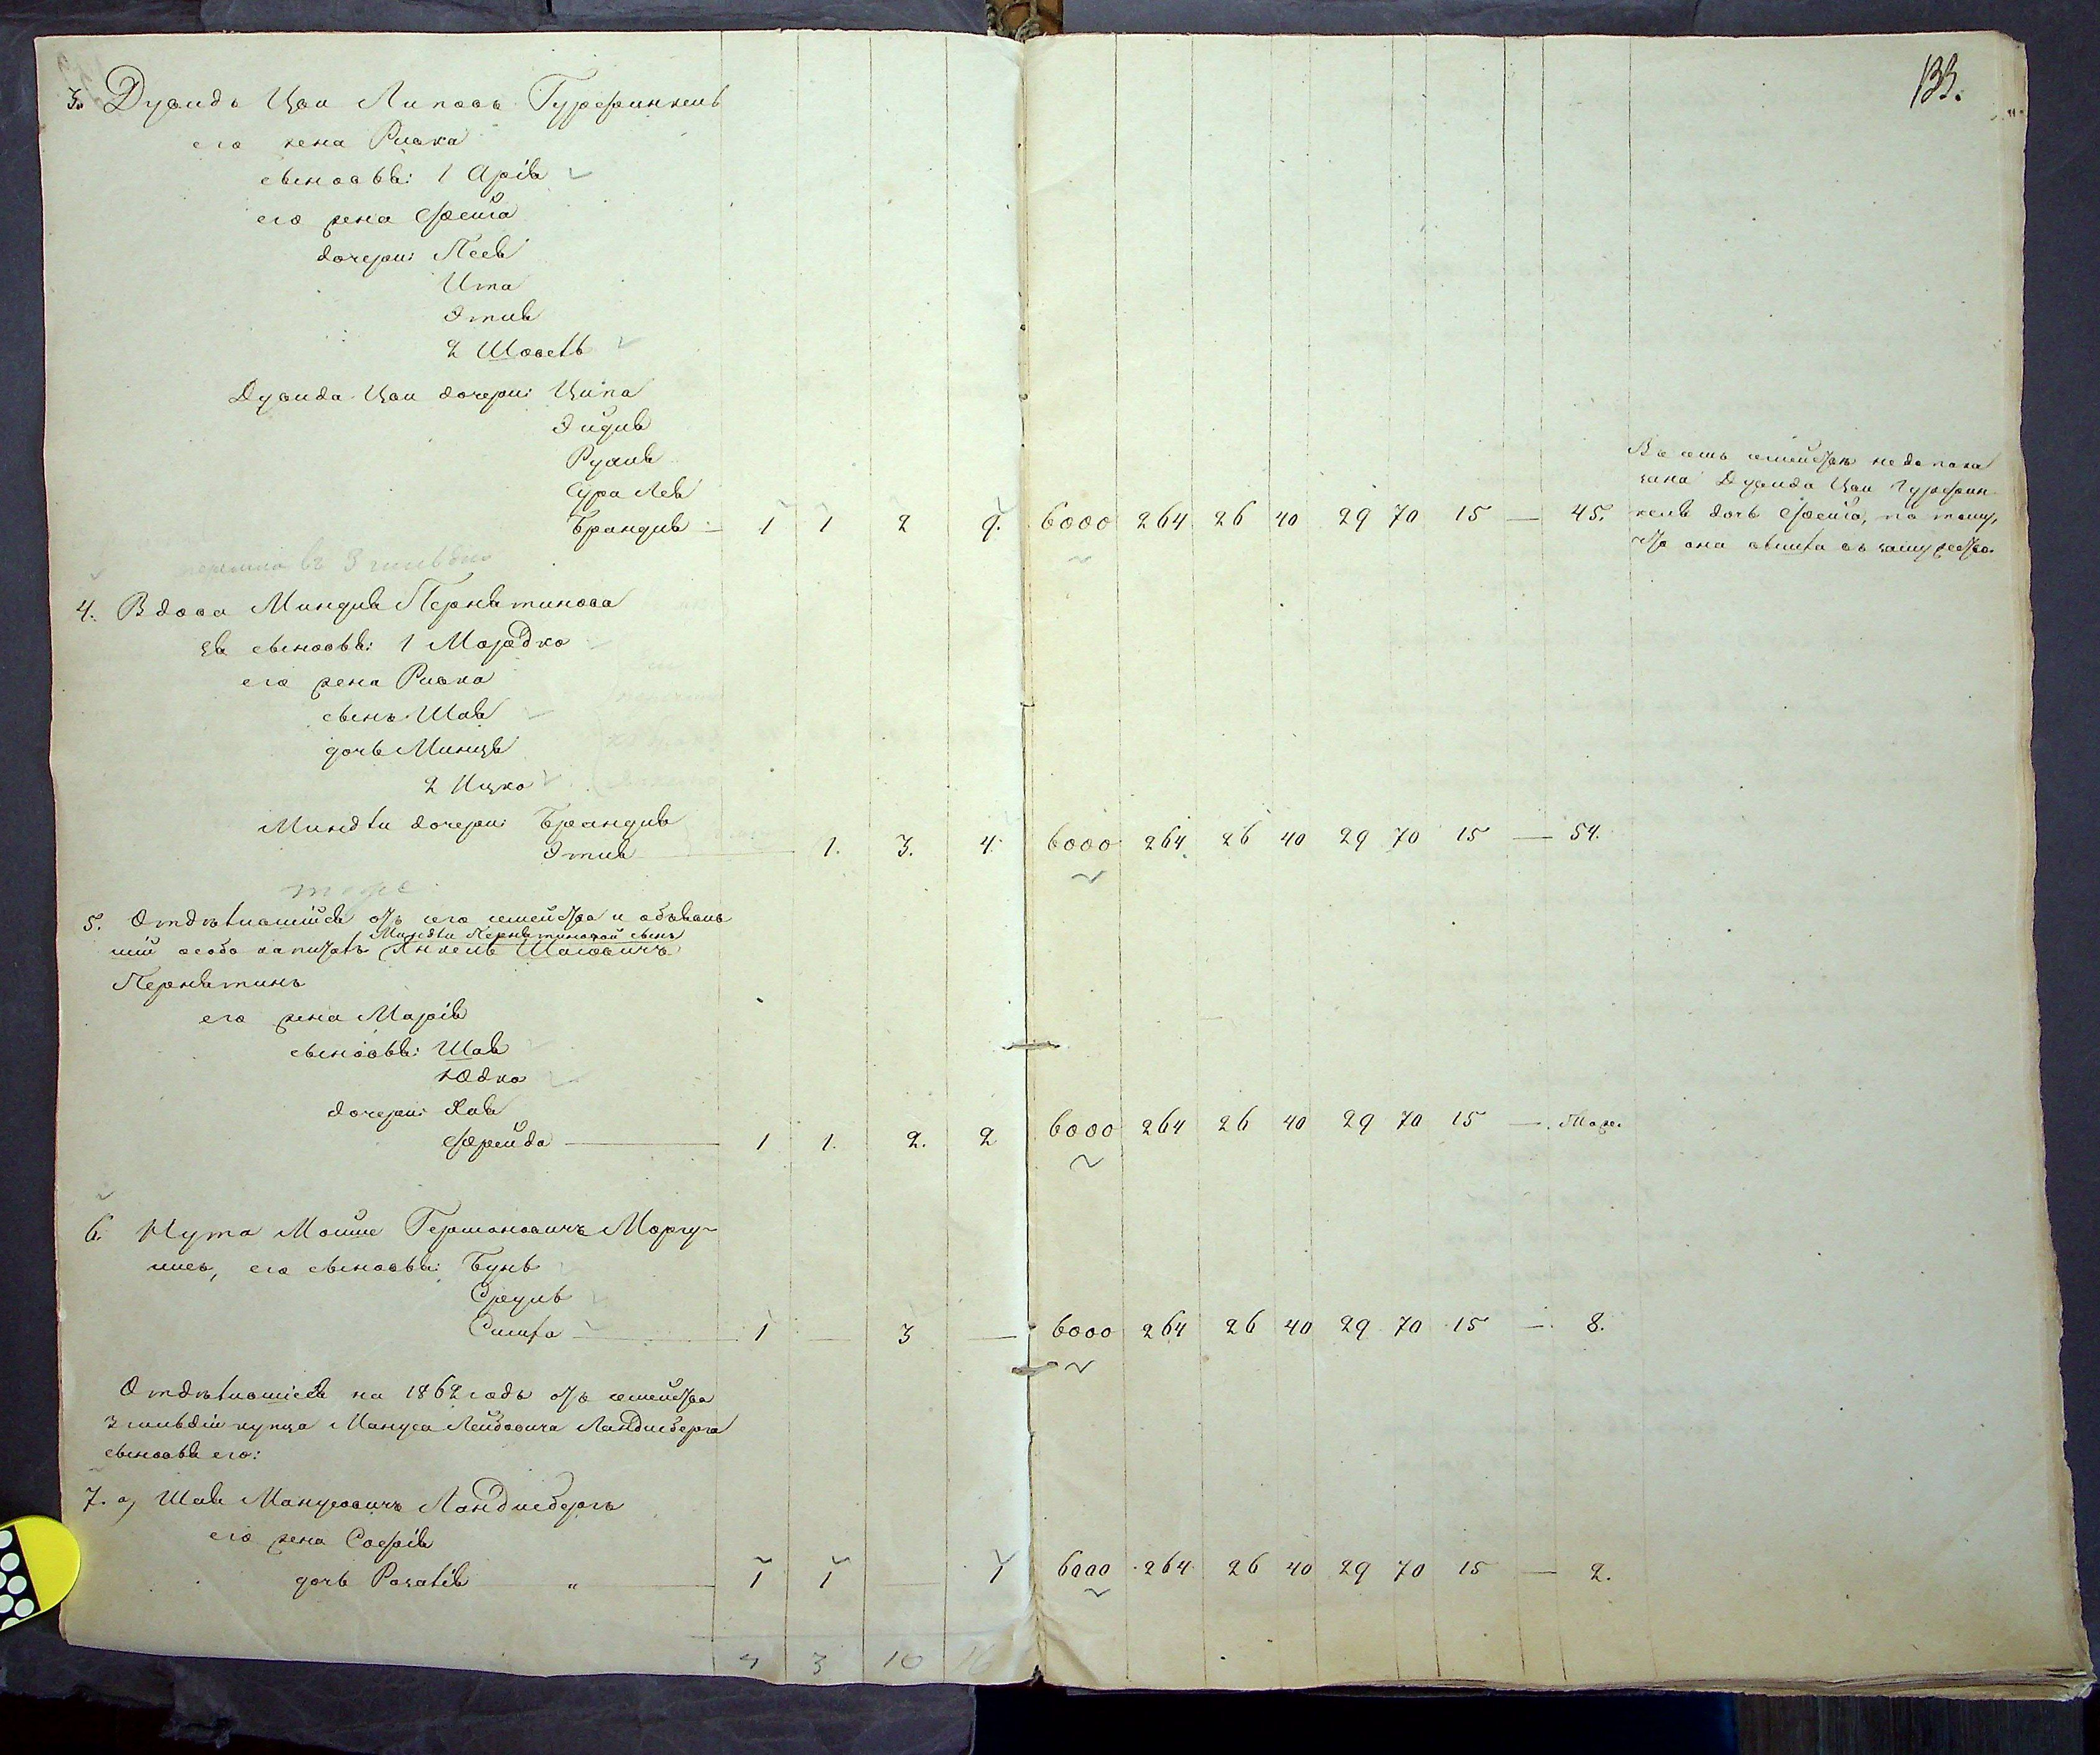 133.
3. Дувидъ Цви Липовъ Гурфинкель
его жена Ривка
сыновья: 1 Арія
его жена Фейга
дочери: Песя
Ита
Этля
2 Шовель
Дувида Цви дочери: Ципа
Эйдля
Рухля
Сура Лея
Брандля — 1 1 2 9. 6000 264 26 40 29 70 15 — 45.
Въ семъ семействѣ не допока
зана Дувида Цви Гурфин-
келя дочь Фейга, по тому,
что она вышла въ замужество.
4. Вдова Миндля Пернятинова
ея сыновья: 1 Мордко
его жена Ривка
сынъ Шая
дочь Минця
2 Ицко
Миндли дочери: Брандля
Этля — 1. 3. 4. 6000 264 26 40 29 70 15 — 54.
тоже
5. Отдѣлившійся отъ сего семейства и объявив
Миндли Пернятиновой сынъ
шій особо капиталъ Янкель Шаевичъ
Пернятинъ
его жена Марія
сыновья: Шая
Юдко
дочери: Хая
Фрейда — 1 1. 2. 2 6000 264 26 40 29 70 15 — Тоже.
6. Нута Мойше Гершоновичъ Маргу-
лисъ, его сыновья: Бунь
Сруль
Симха — 1 — 3 — 6000 264 26 40 29 70 15 — 8.
Отдѣлившіеся на 1862 годъ отъ семейства
3 гильдіи купца Мануса Лейбовича Ландисберга
сыновья его:
7. а, Шая Манусовичъ Ландисбергъ
его жена Софія
дочь Розалія " — 1 1 — 1 6000 264 26 40 29 70 15 — 2.
4 3 10 16